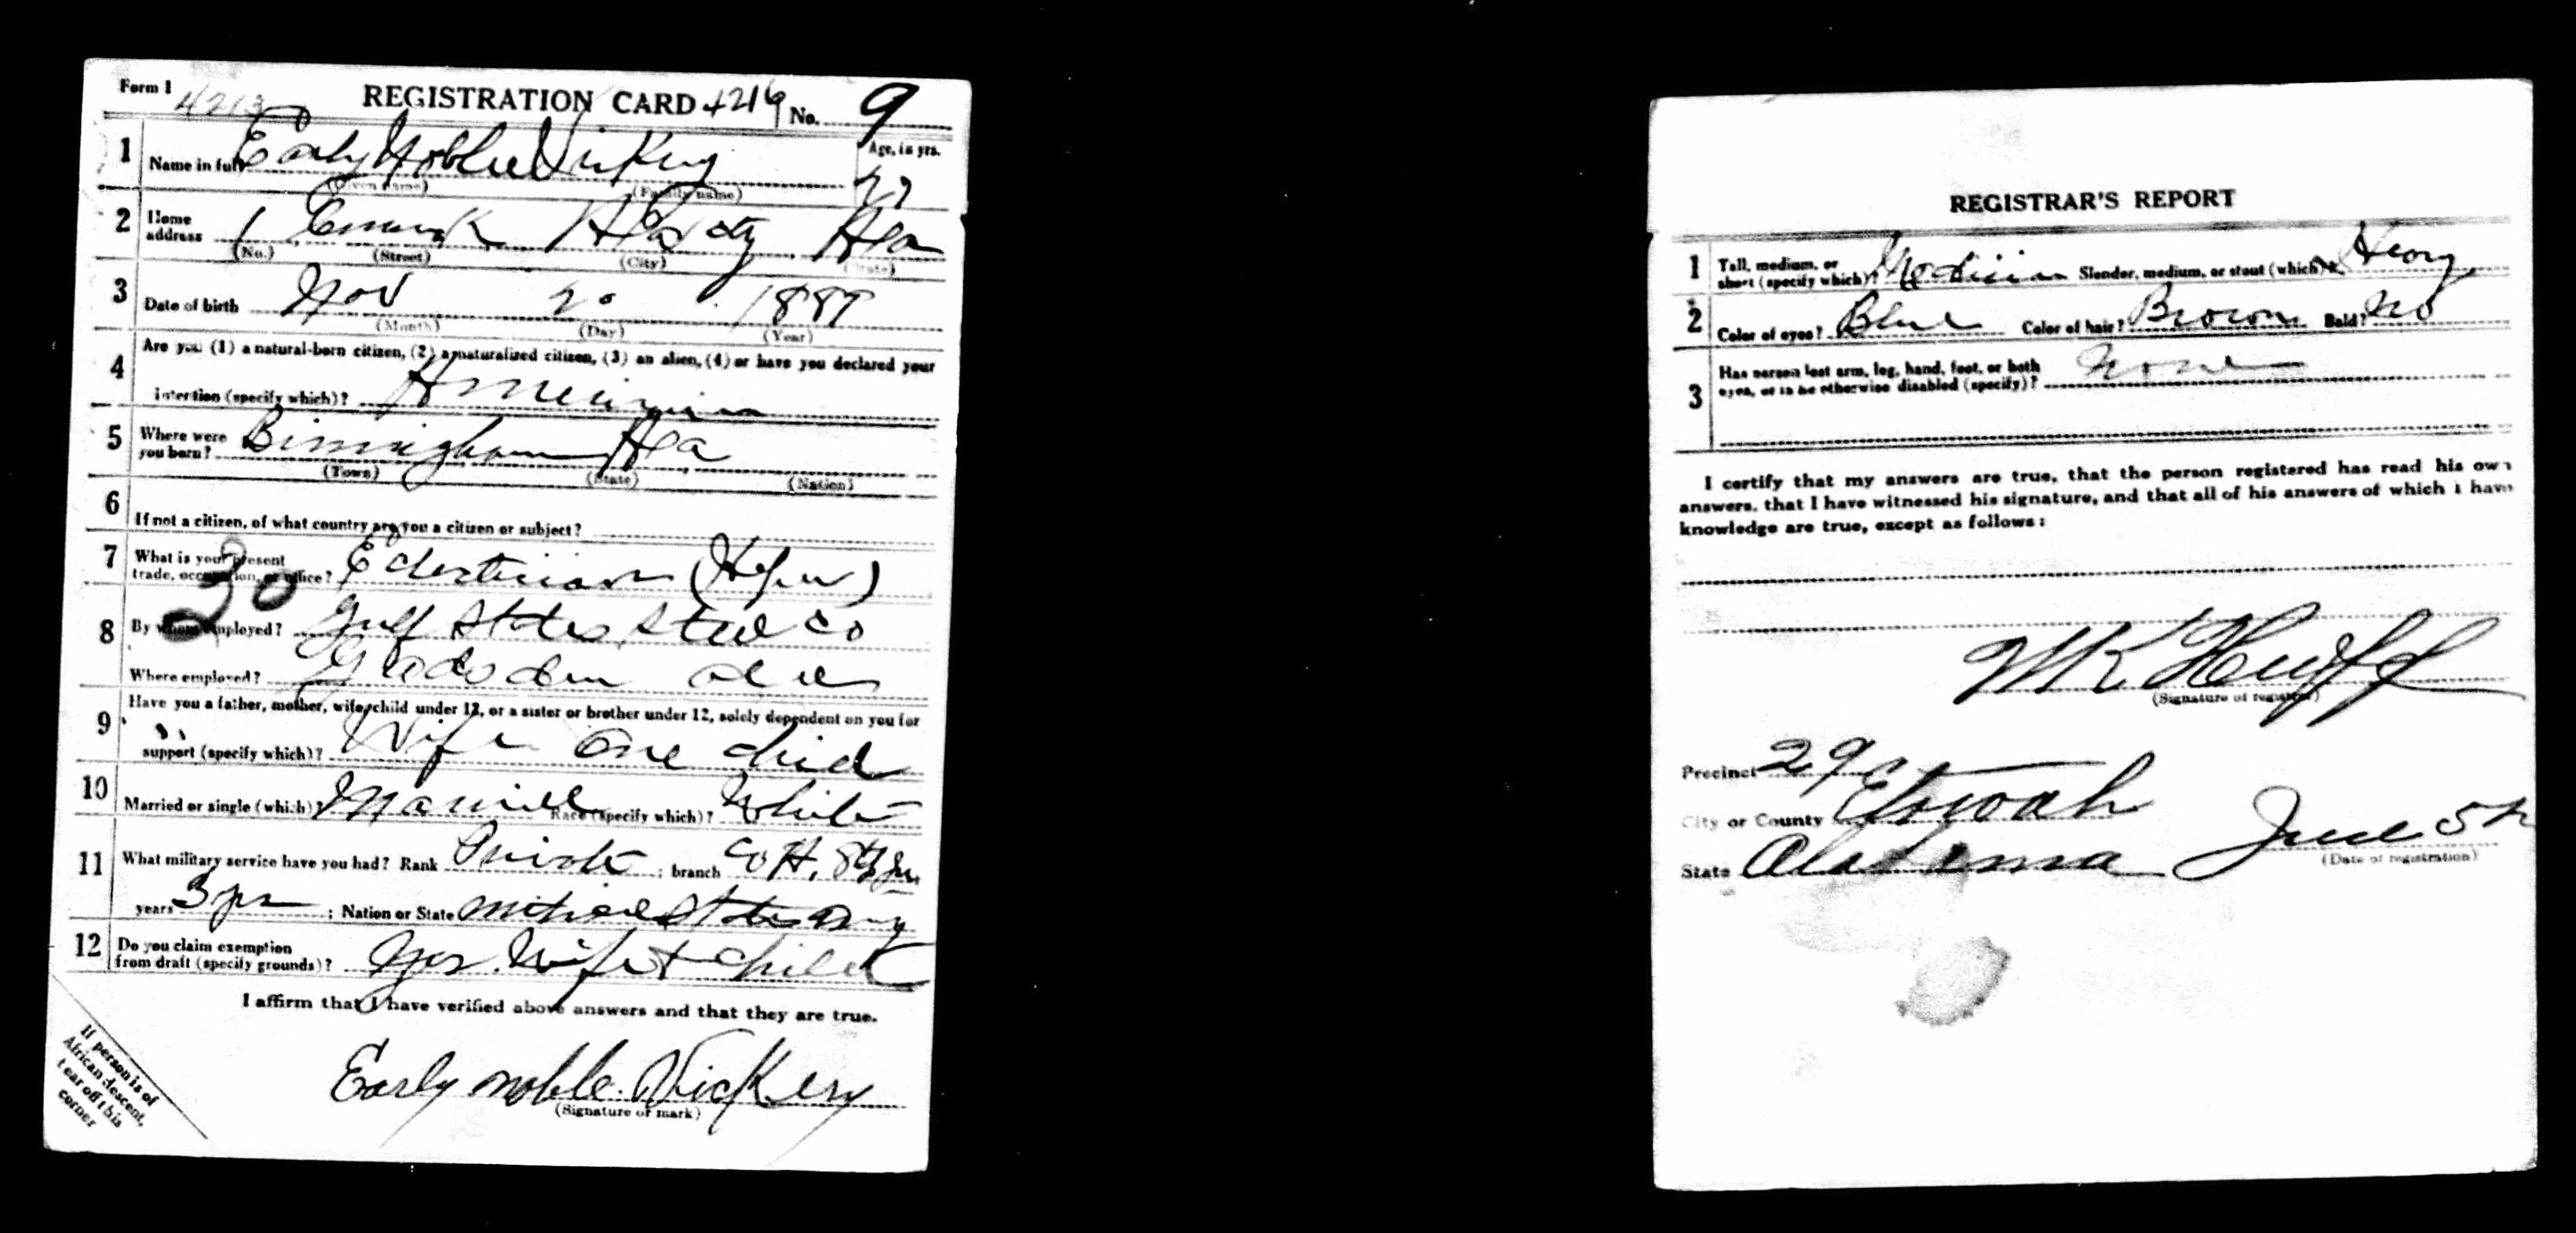 Form 1 4213 REGISTRATION CARD 4219 No. 9
1 Name in full Early Noble Vickery Age, in yrs.
(Given name) (Family name) 27
2 Home address 1 Ala City Ala
(No.) (Street) (City) (State)
3 Date of birth Nov 20 1889
(Month) (Day) (Year)
4 Are you (1) a natural-born citizen, (2) a naturalized citizen, (3) an alien, (4) or have you declared your
intention (specify which)? American
5 Where were you born? Birmingham Ala
(Town) (State) (Nation)
6 If not a citizen, of what country are you a citizen or subject?
7 What is your present trade, occupation, or office? Electrician (Helper)
30
8 By whom employed? Gulf States Steel Co
Where employed? Gadsden Ala
9 Have you a father, mother, wife, child under 12, or a sister or brother under 12, solely dependent on you for
support (specify which)? Wife One child
10 Married or single (which)? Married Race (specify which)? White
11 What military service have you had? Rank Private ; branch Co H.
years 3 yrs ; Nation or State United States Army
12 Do you claim exemption from draft (specify grounds)? Yes. Wife + child
I affirm that I have verified above answers and that they are true.
Early noble Vickery
(Signature or mark)
If person is of
African descent,
tear off this
corner
REGISTRAR'S REPORT
1 Tall, medium, or short (specify which)? Medium Slender, medium, or stout (which)? Heavy
2 Color of eyes? Blue Color of hair? Brown Bald? No
3 Has person lost arm, leg, hand, foot, or both
eyes, or is he otherwise disabled (specify)? None
I certify that my answers are true, that the person registered has read his own
answers, that I have witnessed his signature, and that all of his answers of which I have
knowledge are true, except as follows:
Huff
(Signature of registrar)
Precinct 29
City or County Etowah
State Alabama June 5th
(Date of registration)